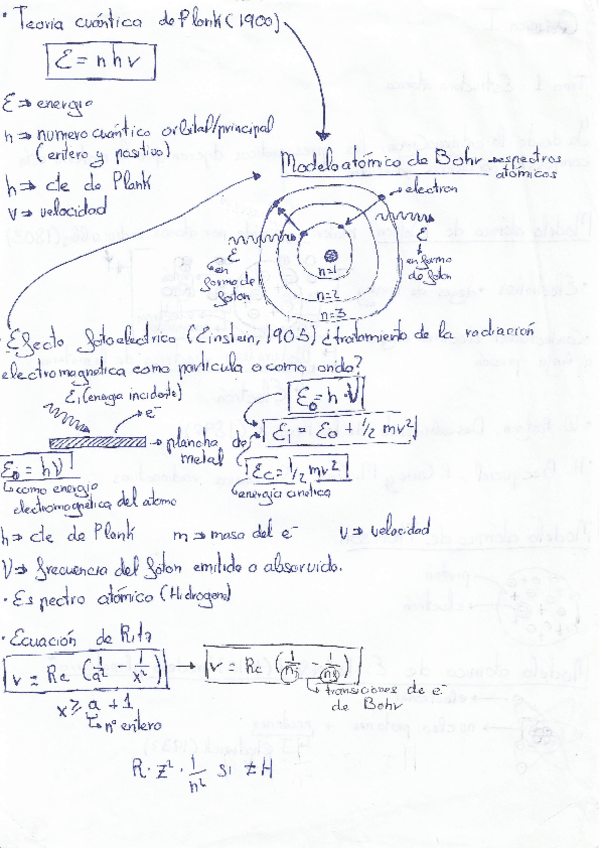 · Teoria cuántica de Plank (1900)
E = n h v
E ⇒ energia
n ⇒ numero cuántico orbital/principal
(entero y positivo)
h ⇒ cte de Plank
v ⇒ velocidad
Modelo atómico de Bohr → espectros
atómicos
electron
E
en
forma de
foton
E
en forma
de foton
n=1
n=2
n=3
· Efecto fotoelectrico (Einstein, 1905) ¿tratamiento de la radiacion
electromagnetica como particula o como onda?
Ei (energia incidente)
e⁻
→ plancha de
metal
E₀ = h · ν
Ei = E₀ + 1/2 mv²
Ec = 1/2 mv²
energia cinetica
E₀ = hν
como energia
electromagnetica del atomo
h ⇒ cte de Plank m ⇒ masa del e⁻ v ⇒ velocidad
ν ⇒ frecuencia del foton emitido o absorvido.
· Espectro atómico (Hidrogeno)
· Ecuación de Ritz
v = Rc (1/a² - 1/x²) → v = Rc (1/n₁ - 1/n₂)
transiciones de e⁻
de Bohr
x ≥ a + 1
nº entero
R · Z² · 1/n² si ≠ H